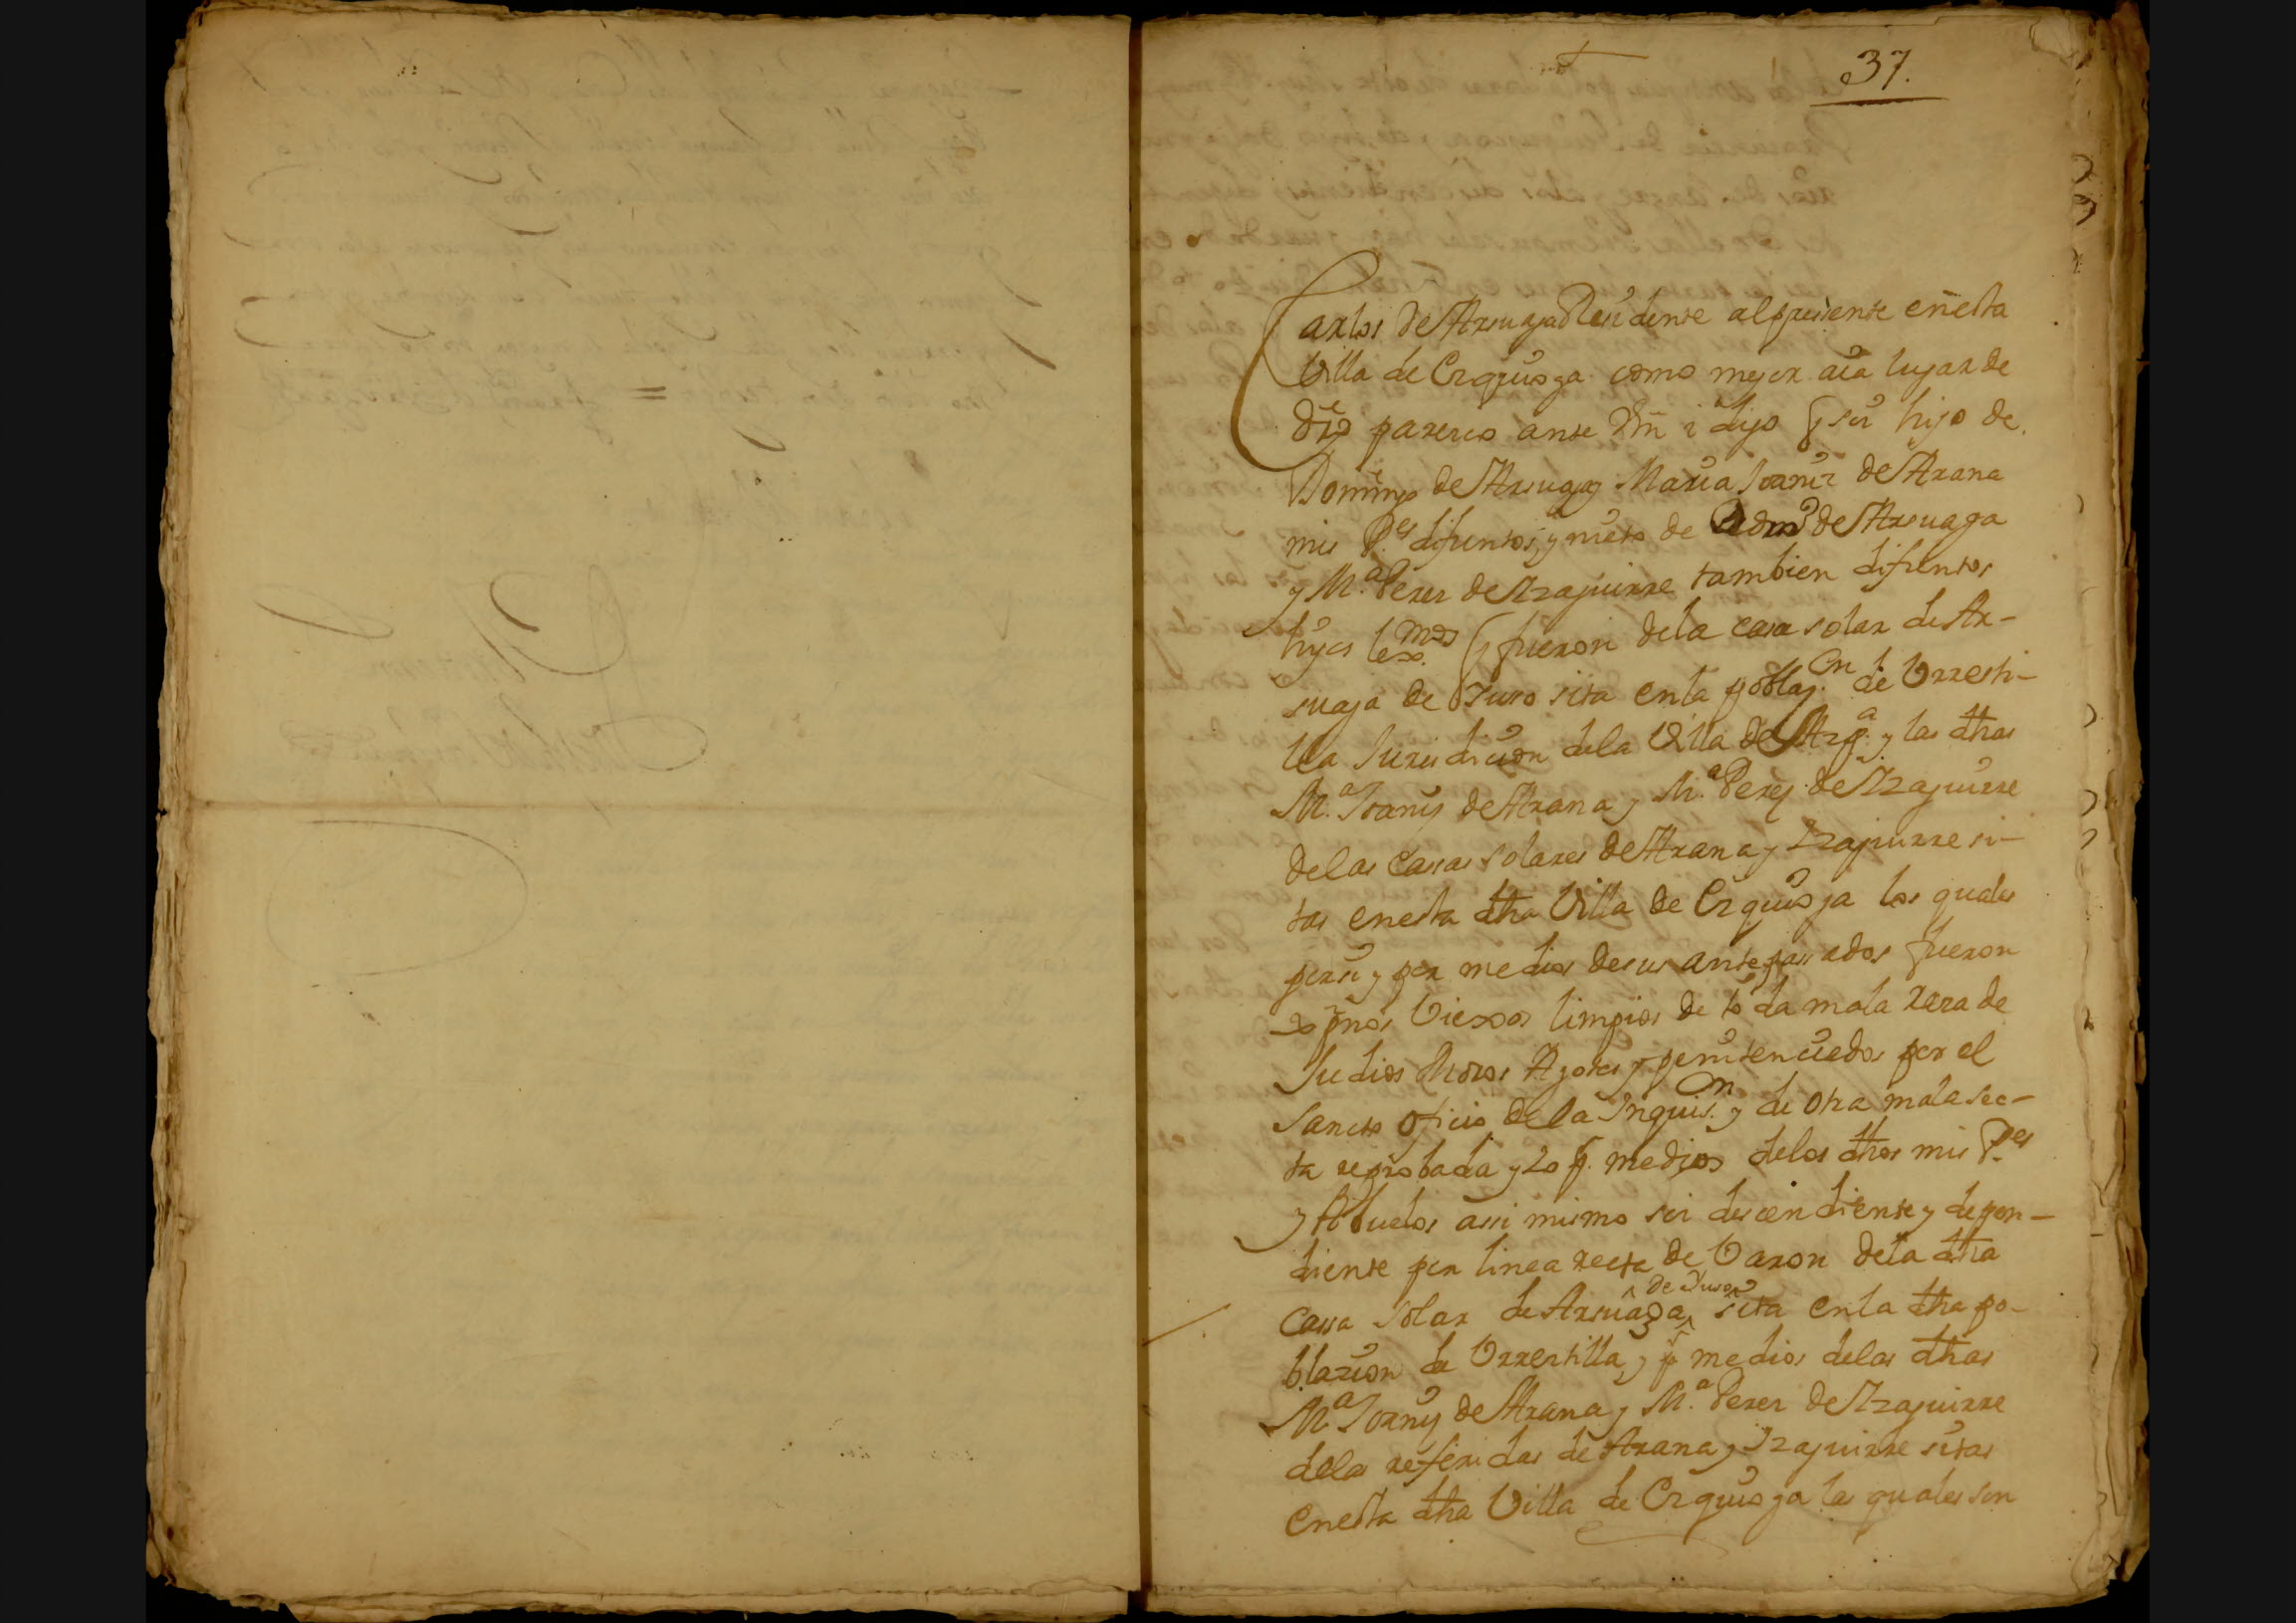 37.
Carlos de Arsuaga Residente al presente en esta
Villa de Ezquioga como mejor aia lugar de
dro paresco ante Vm i digo q soi hijo de
Domingo de Arsuaga y Maria Joaniz de Arana
mis P.es difuntos, y nieto de Pedro de Arsuaga
y M.a Perez de Izaguirre tambien difuntos
hijos lex.mos q fueron dela casa solar de Ar-
suaga de Yuso sita en la poblaz.on de Urresti-
lla Jurisdicion dela Villa de Azp.a y las dhas
M.a Joaniz de Arana y M.a Perez de Izaguirre
delas Casas solares de Arana y Izaguirre si-
tas en esta dha Villa de Ezquioga los quales
por si y por medios de sus antepasados fueron
xpnos Viexos limpios de toda mala raza de
Judios Moros Agotes y penitenciados por el
Sancto oficio de la Inquis.on y de otra mala sec-
ta reprobada y Yo p. medios delos dhos mis P.es
y Abuelos assi mismo soi descendiente y depen-
diente por linea recta de Varon dela dha
Cassa solar de Arsuaga de Yuso sita en la dha po-
blazion de Urrestilla, y p medios delas dhas
M.a Joaniz de Arana y M.a Perez de Izaguirre
delas referidas de Arana y Izaguirre sitas
en esta dha Villa de Ezquioga las quales son